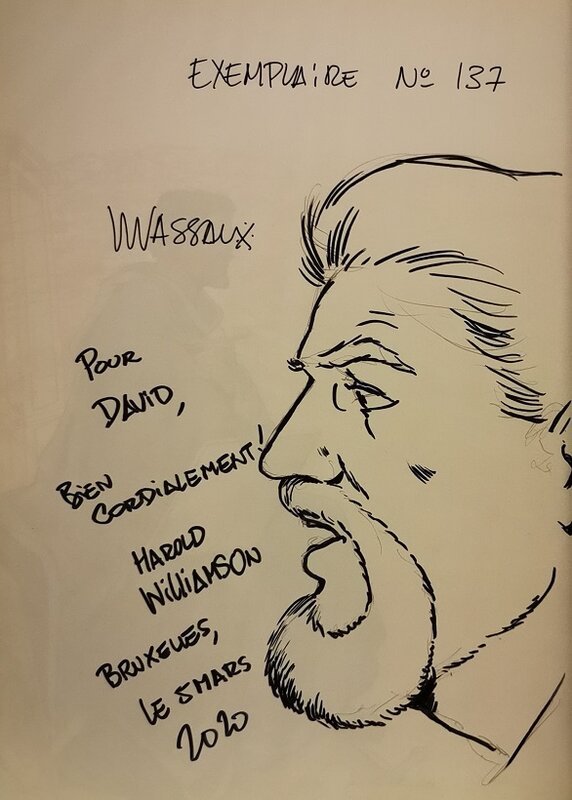 EXEMPLAIRE No 137
WASSAUX
POUR
DAVID,
BIEN
CORDIALEMENT!
HAROLD
WILLIAMSON
BRUXELLES,
LE 5 MARS
2020